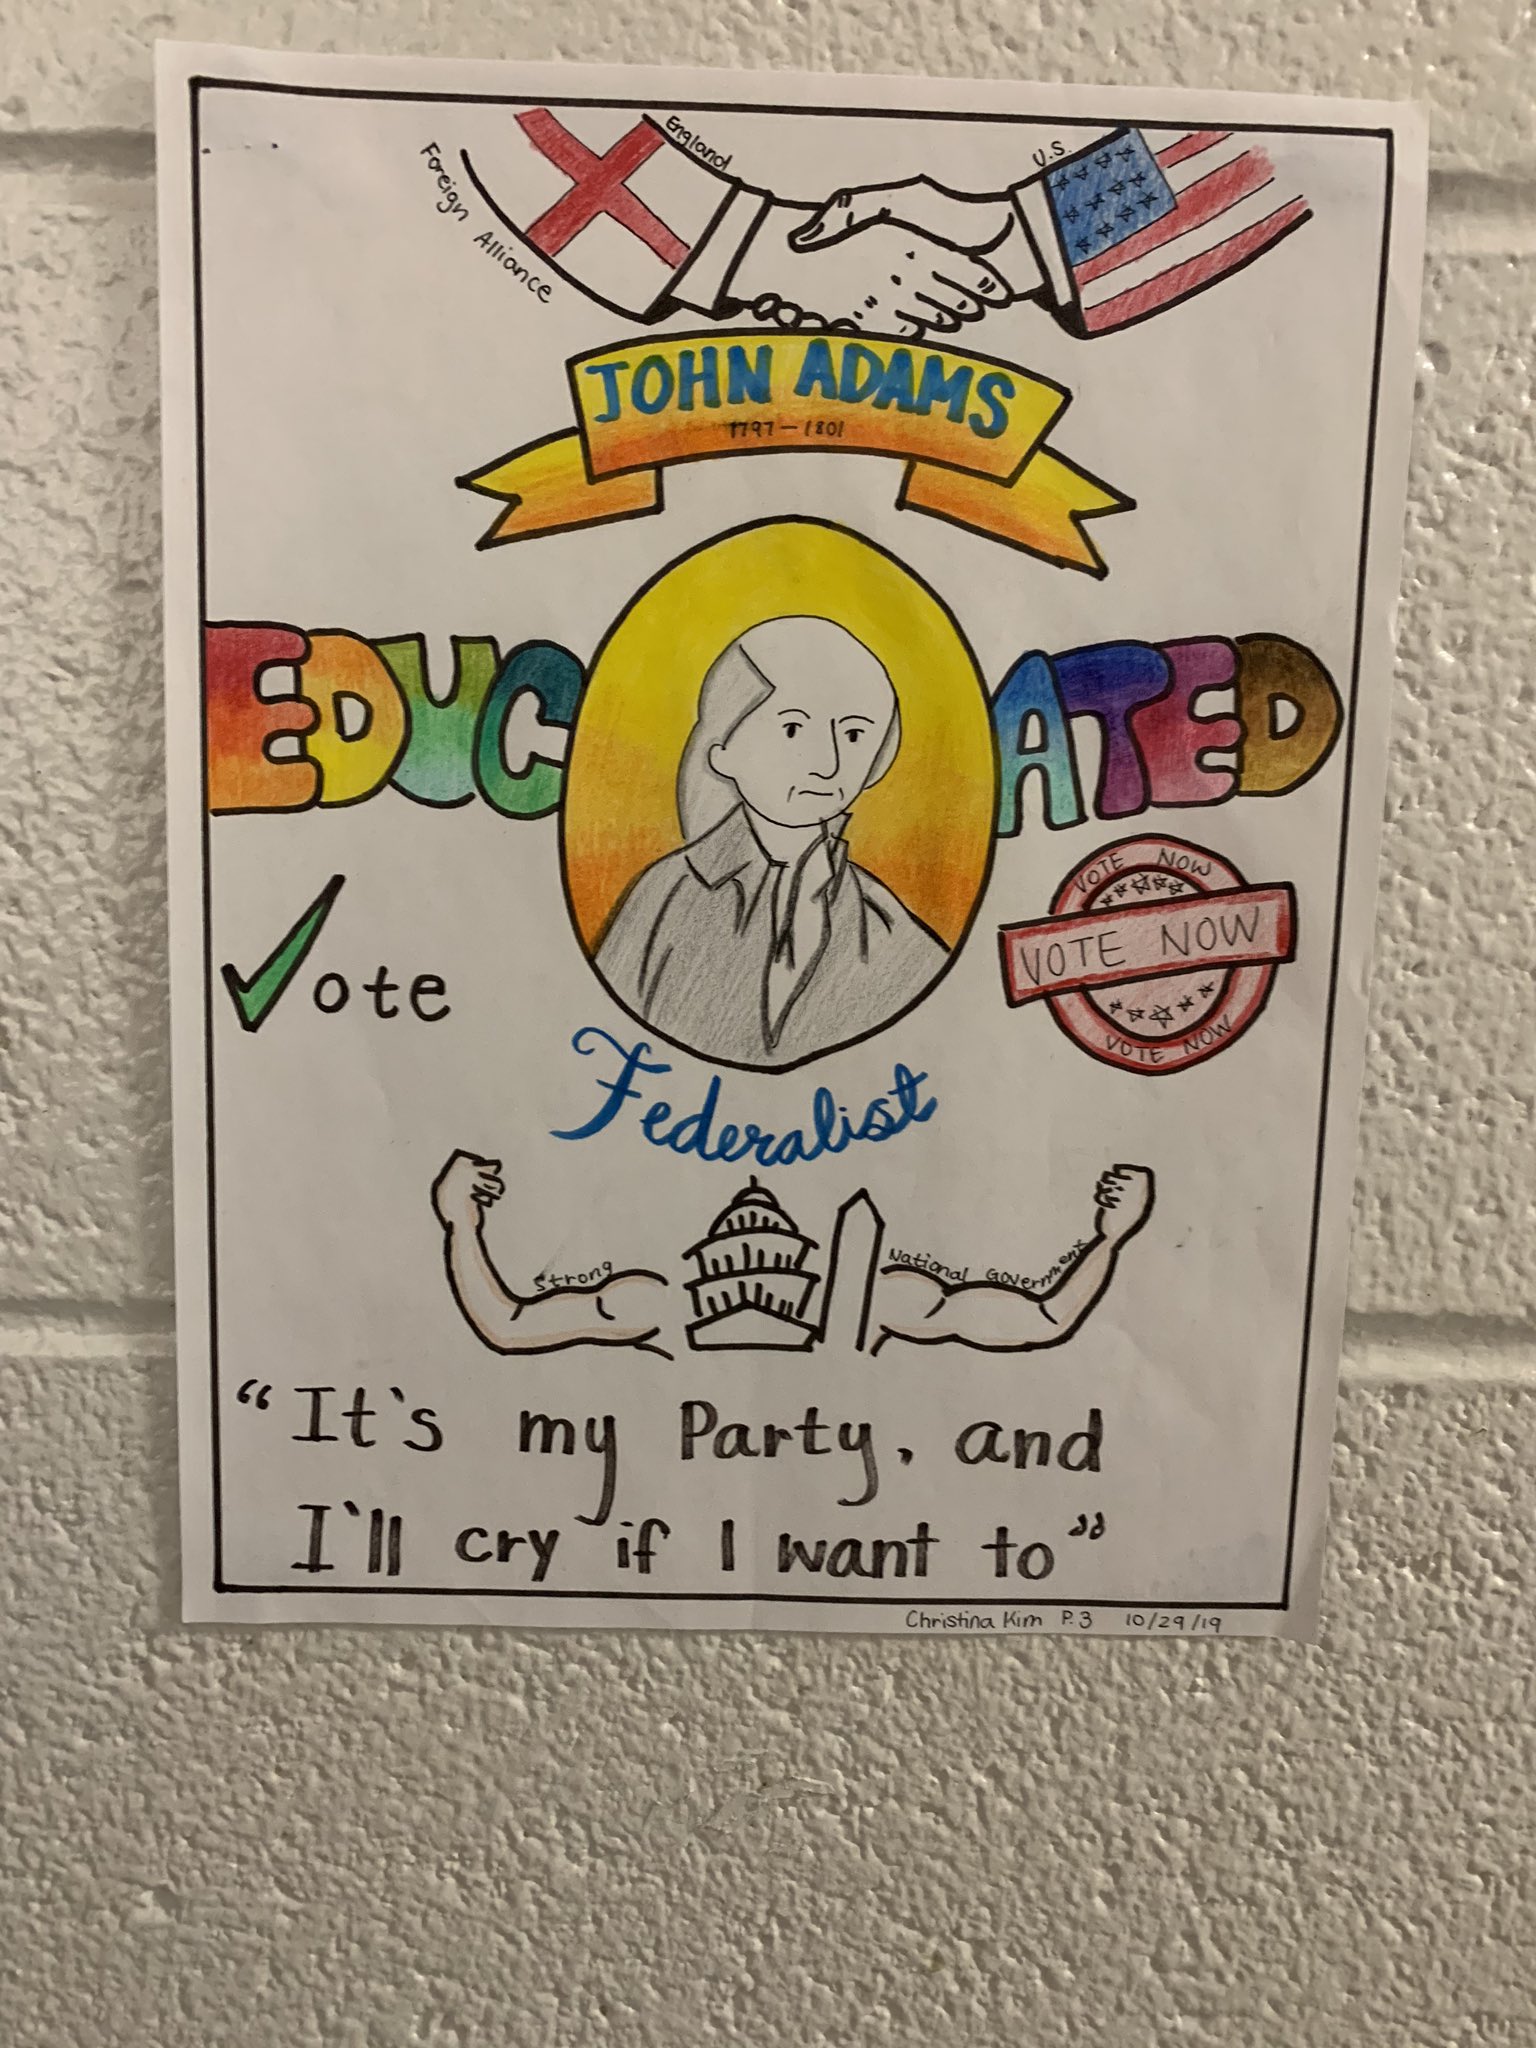 England
U.S.
Foreign Alliance
JOHN ADAMS
1797-1801
EDUCATED
VOTE NOW
Vote
VOTE NOW
VOTE NOW
Federalist
Strong
National Government
"It's my Party, and
I'll cry if I want to"
Christina Kim P.3 10/29/19